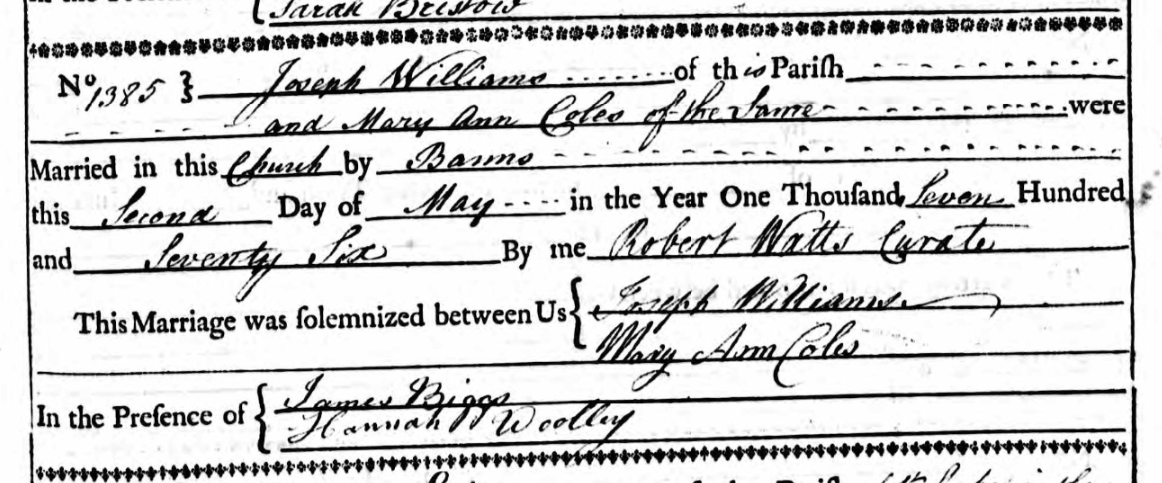 Sarah Bristow
No 1385 } Joseph Williams of this Pariſh
and Mary Ann Coles of the Same were
Married in this Church by Banns
this Second Day of May in the Year One Thouſand Seven Hundred
and Seventy Six By me Robert Watts Curate
This Marriage was ſolemnized between Us { Joseph Williams
Mary Ann Coles
In the Preſence of { James Biggs
Hannah Woolley